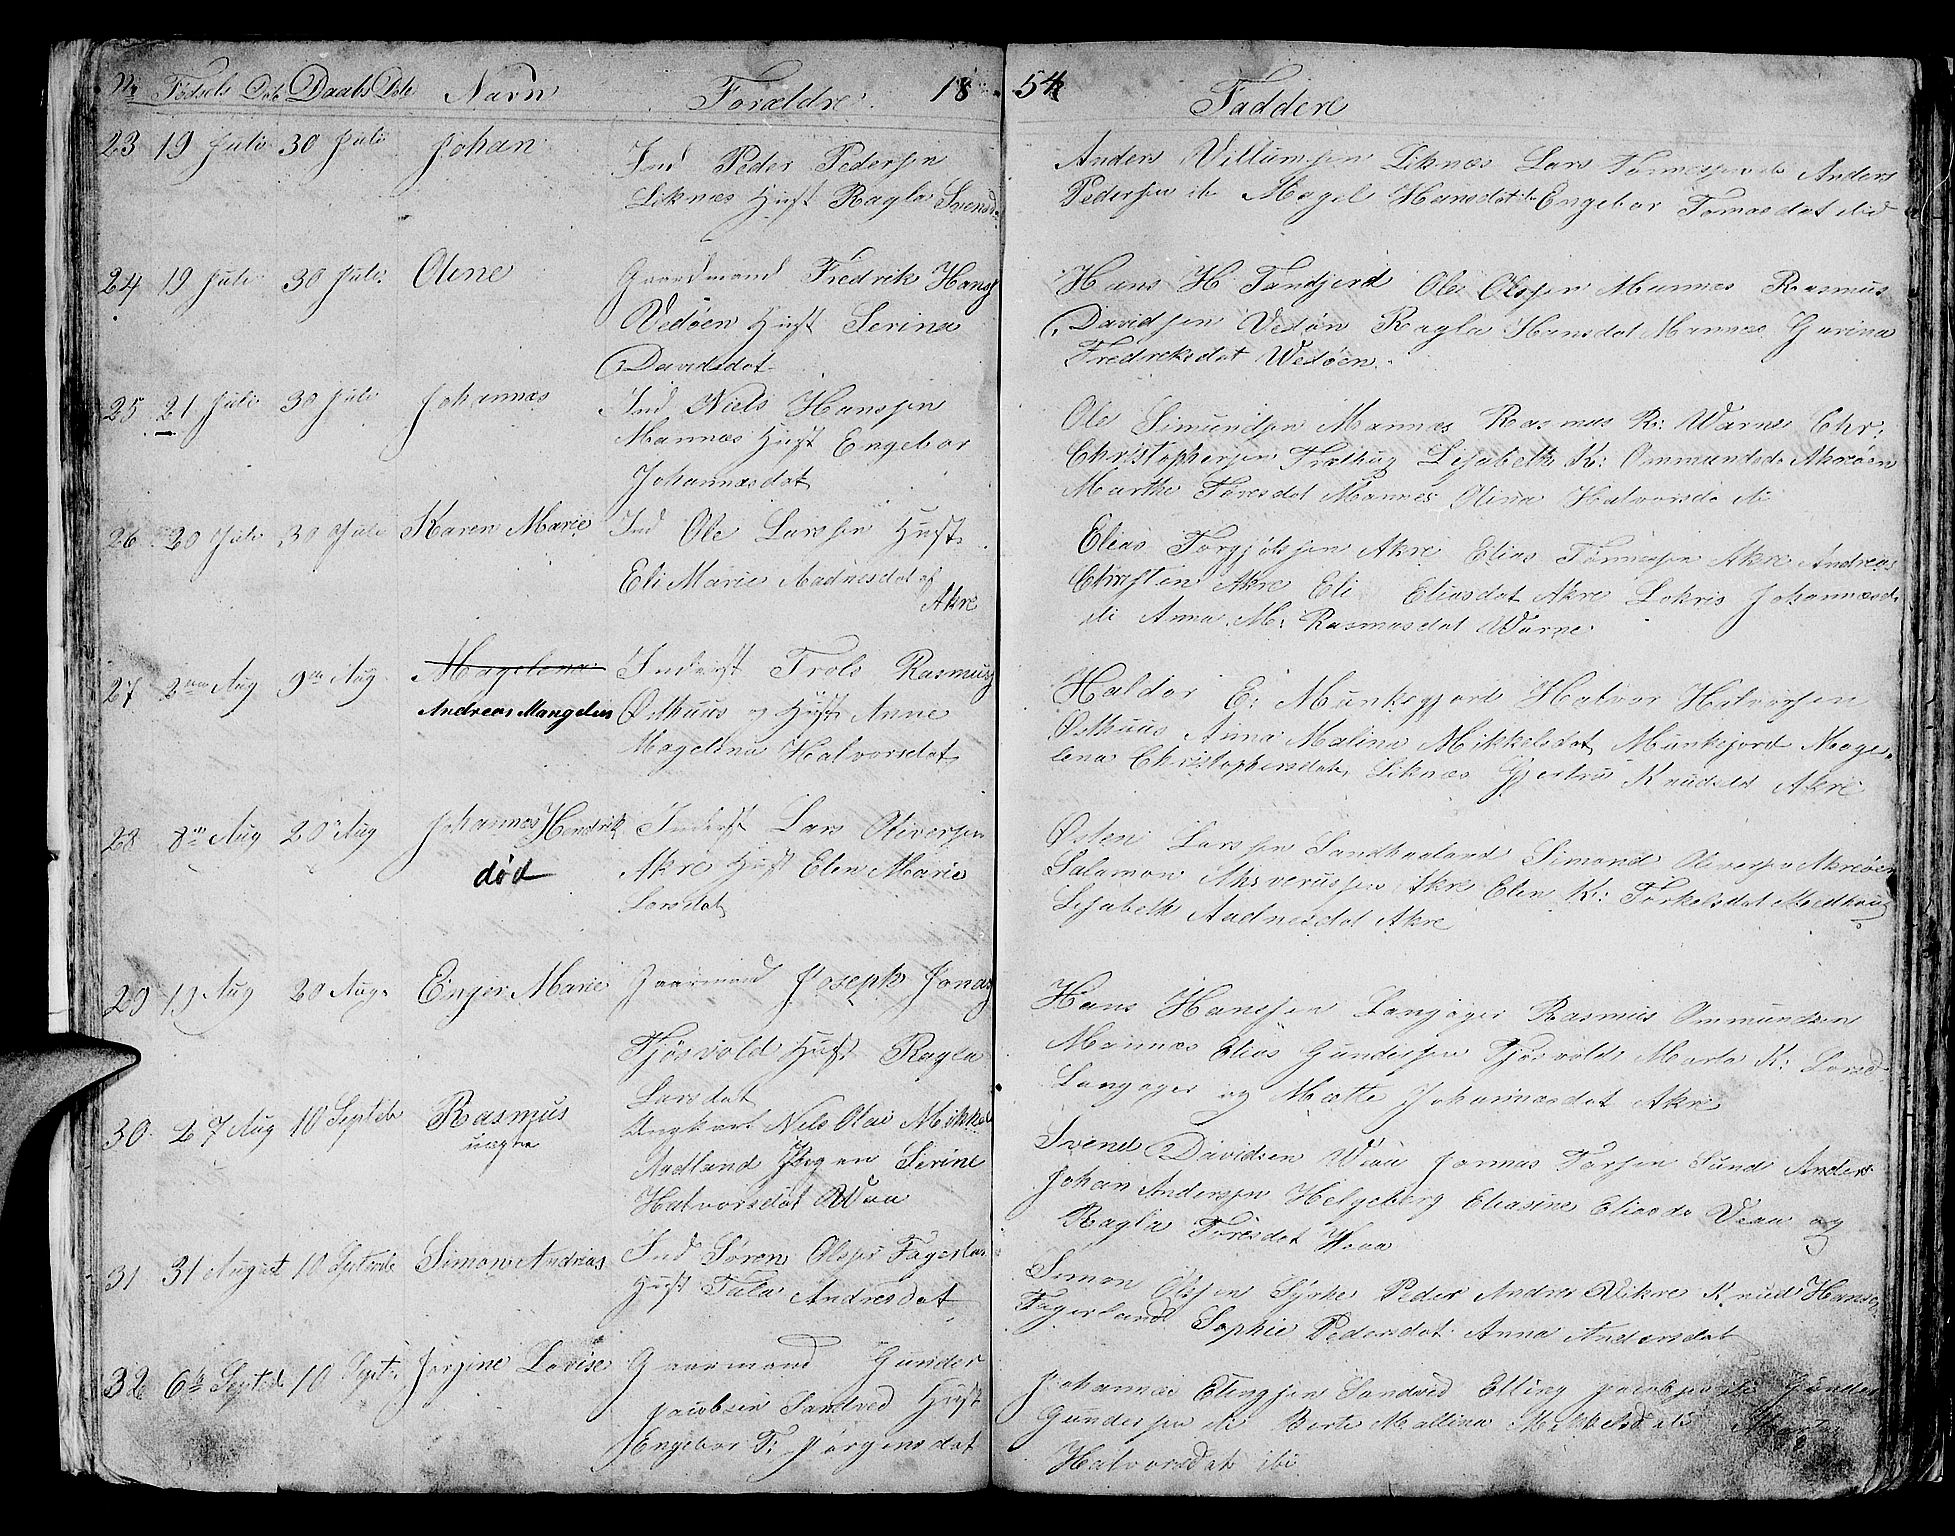 Nr Fødsels Dat Daabs Dat Navn Forældre 18 54 Faddere
23 19 Juli 30 Juli Johan Ind Peder Pedersen
Liknæs Hust Ragla Svensd
Anders Villumsen Liknæs Lars Tønnesen ib Anders
Pedersen ib Magel Hansdat ib Engebor Tomasdat ibid
24 19 Juli 30 Juli Oline Gaardmand Fredrik Hans
Vedøen Hust Serina
Davidsdat
Hans H Sandjerd Ole Olsen Mannes Rasmus
Davidsen Vedøn Ragla Hansdat Mannæs Gurina
Fredreksdat Wedøen.
25 21 Juli 30 Juli Johannas Ind Niels Hansen
Mannæs Hust Engebor
Johannasdat
Ole Simundsen Mannæs Rasmus R: Warne Chr:
Christophersen Træthug Lisabeth K: Ommundsd Akreøen
Marthe Toresdat Mannes Olina Halvorsd ib
26 20 Juli 30 Juli Karen Marie Ind Ole Larssen Hust
Eli Marie Aadnesdat af
Akre
Elias Torgjølsen Akre Elias Tønnesen Akre Andreas
Christen Akre Eli Eliasdat Akre Lokris Johannesd
ib Anna M: Rasmusdat Warne
27 2den Aug 9de Aug Magelena Inderst Trols Rasmus
Andreas Mangelus Østhuus og Hust Anne
Magelina Halvorsdat
Haldor E: Munkegjord Halvor Halvorsen
Østhuus Anna Malina Mikkelsdat Munkejord Mage-
lena Christophersdat Liknæs Gjertru Knudsd Akre
28 8de Aug 20de Aug Johannes Hendrik Inderst Lars Oliversen
død Akre Hust Elen Marie
Larsdat
Østen Larssen Sandhaaland Simond Oliversen Akreøen
Salamon Ahsverussen Akre Elen K: Torkelsdat Medhoug
Lisabeth Aadnesdat Akre
29 19 Aug 20 Aug. Enger Marie Gaarmand Joseph Jonas
Tjøsvold Hust Ragla
Larsdat
Hans Hanssen Langager Rasmus Ommundsen
Mannæs Elias Gundersen Tjøsvold Marta K: Larsd
Langager og Mætte Johannesdat Akre
30 27 Aug 10 Septebr Rasmus Ungkarl Nels Olai Mikkel
uægte Aadland Pigen Serine
Halvorsdat Waa
Svend Davidsen Waa Jonnas Torsen Sund Anders
Johan Andersen Helgeberg Eliasine Eliasd Veaa og
Ragla Toresdat Waa
31 31 August 10 Septembr Simon Andreas Ind Søren Olsen Fagerlan
Hust Tala Andresdat
Simon Olsen Syre Peder Andrs Vikre Knud Hans
Fagerland Sophie Pedersdat Anna Andersdat
32 6te Septed 10 Sept. Jorgine Lovise Gaarmand Gunder
Jacobsen Sandved Hust
Engebor T: Jørgensdat
Johannes Elingsen Sandved Elling Jacobsen ib Gunder
Gundersen ib Berte Mallina Mikkelsd ib
Halvorsdat ibi.